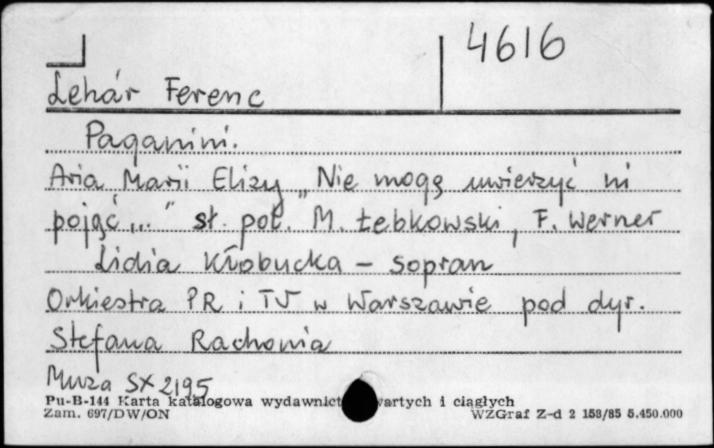 4616
Lehár Ferenc
Paganini.
Aria Marii Elizy „Nie mogę uwierzyć ni
pojąć..." sł. pol. M. Łebkowski, F. Werner
Lidia Kłobucka – sopran
Orkiestra PR i TV w Warszawie pod dyr.
Stefana Rachonia
Muza SX 2195
Pu-B-144 Karta katalogowa wydawnict wartych i ciągłych
Zam. 697/DW/ON WZGraf Z-d 2 158/85 5.450.000